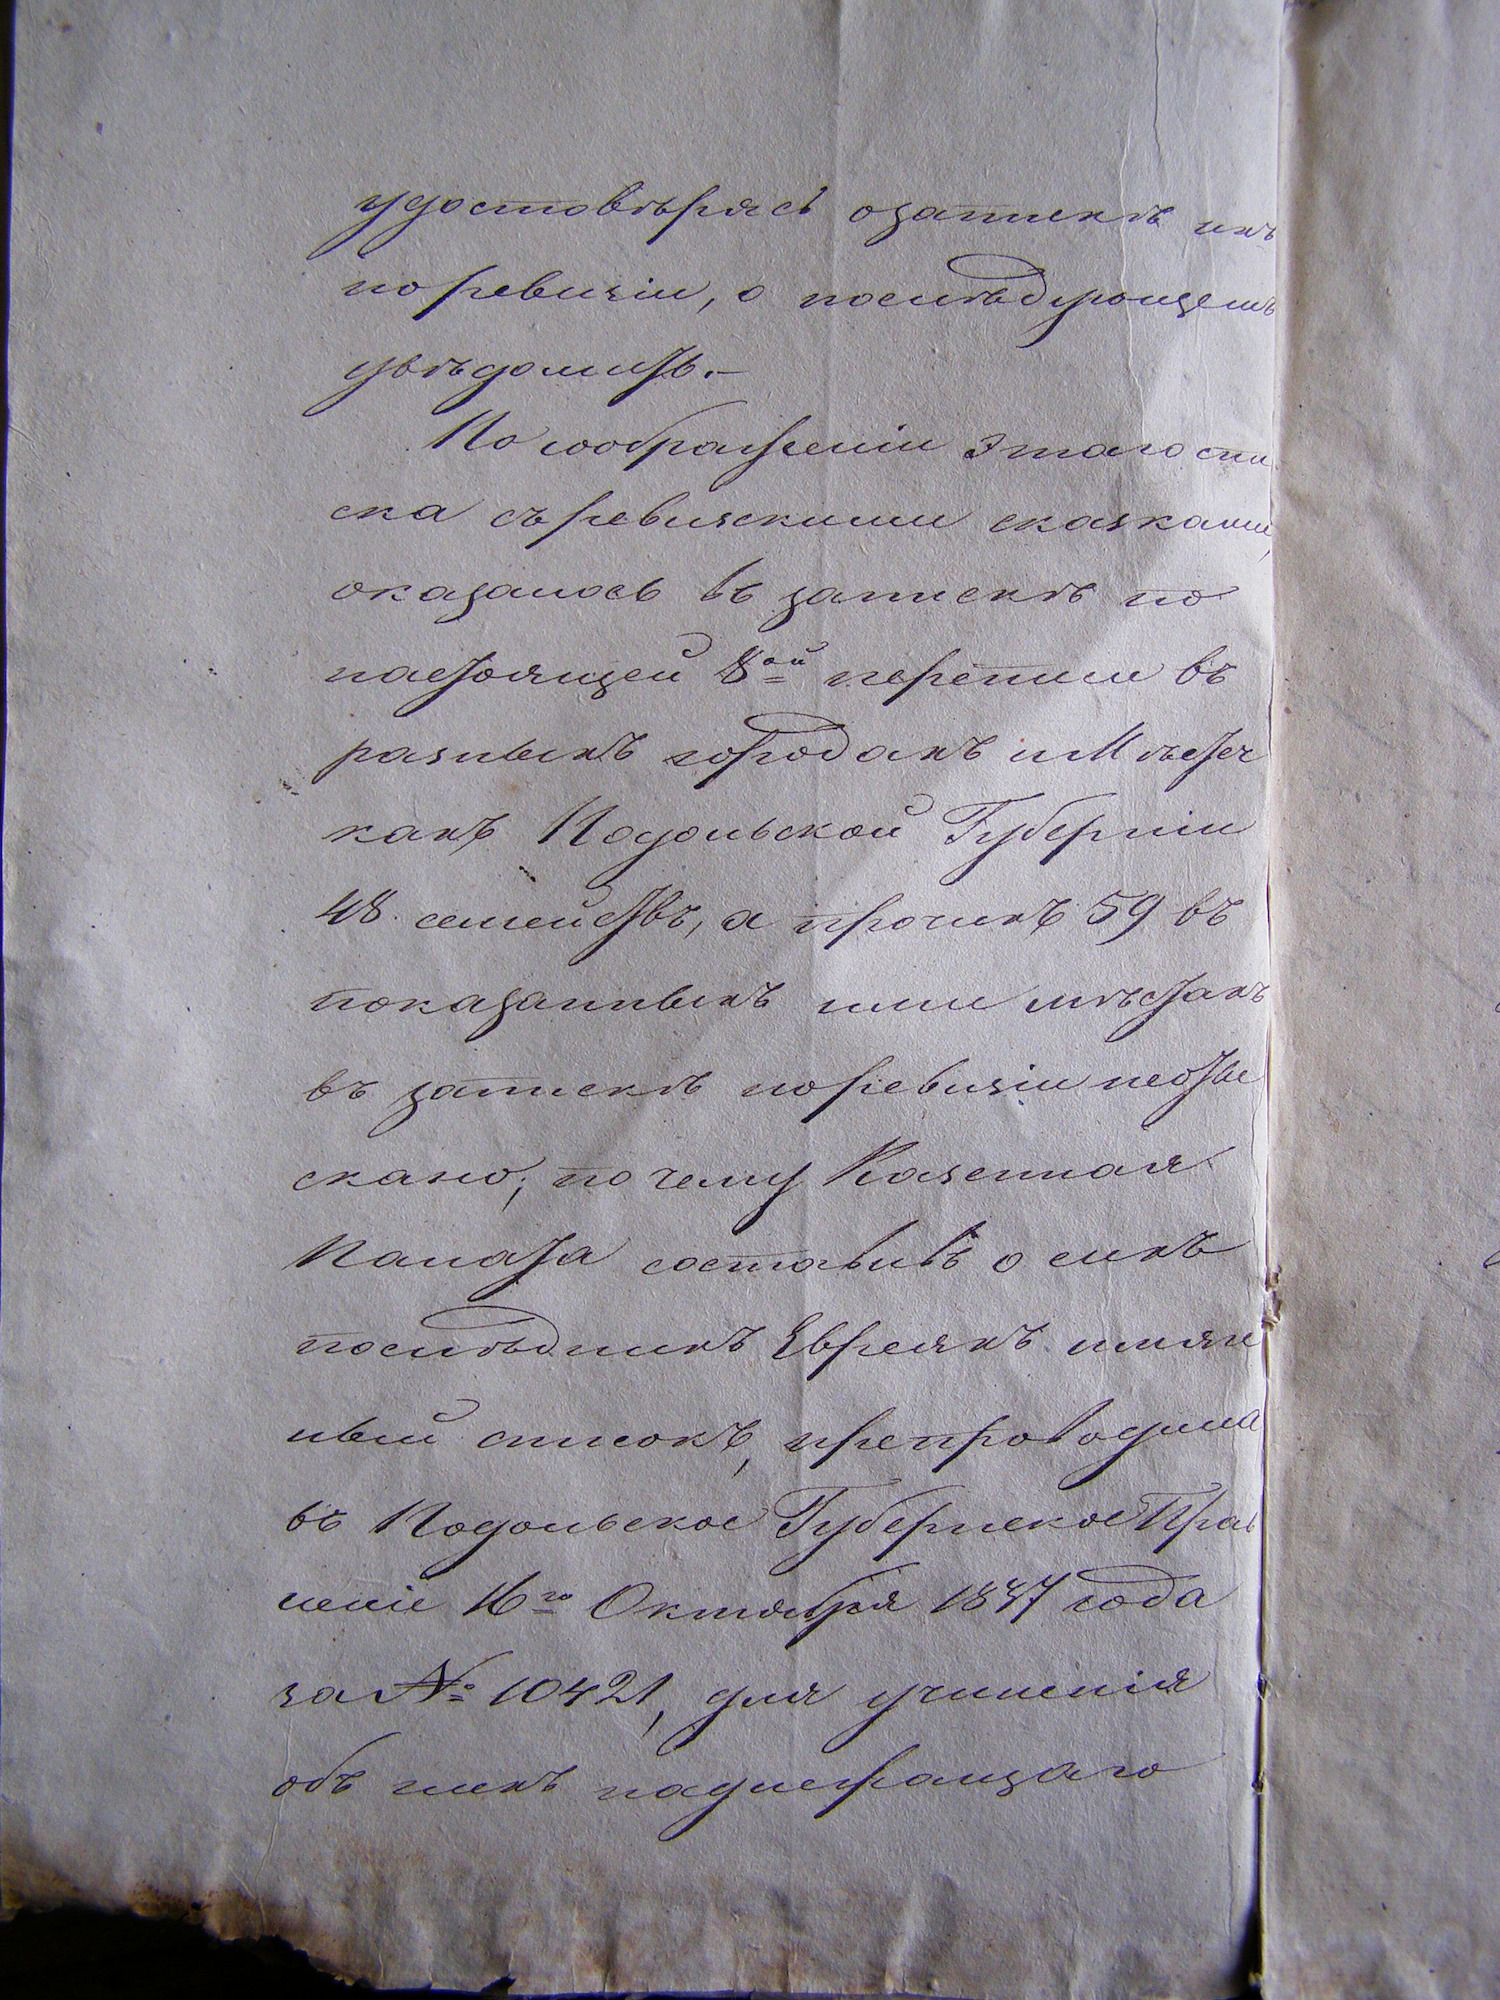 удостовѣрясь озапискѣ ихъ
поревизіи, о послѣдующемъ
увѣдомить.–
По соображеніи этаго спи
ска съревизскими сказками,
оказалось въ запискѣ по
настоящей 8ой переписи въ
разныхъ городахъ и Мѣстеч
кахъ Подольской Губерніи
48 семействъ, а прочихъ 59 въ
показанныхъ ими мѣстахъ
въ запискѣ поревизіи неоты
скано; по чему Казенная
Палата составивъ о сихъ
послѣднихъ Евреяхъ имян
ный списокъ, препроводила
въ Подольское Губернское Прав
леніе 16го Октября 1837 года
за № 10421, для учиненія
объ нихъ надлежащаго